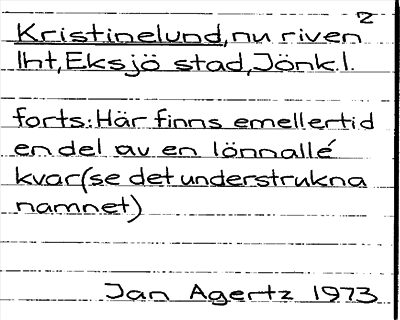 2
Kristinelund, nu riven
lht, Eksjö stad, Jönk.l.
forts: Här finns emellertid
en del av en lönnallé
kvar (se det understrukna
namnet)
Jan Agertz 1973